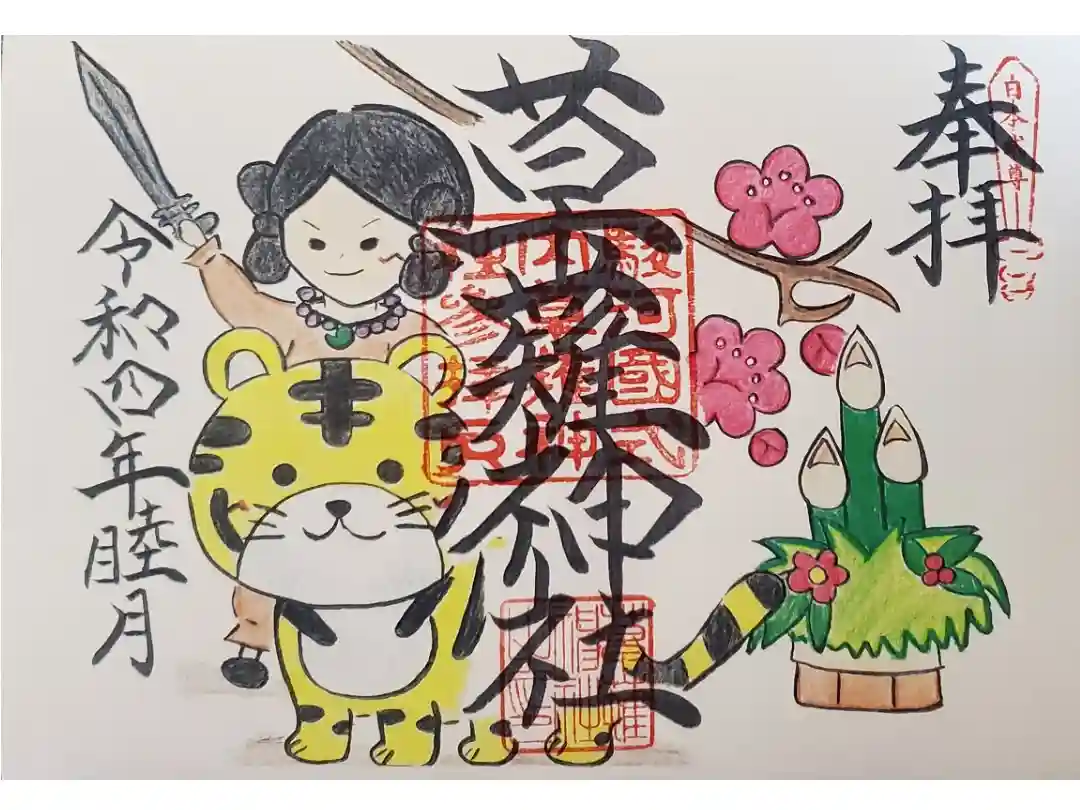 奉拝
日本武尊
草薙神社
駿河國式
内草薙神
令和四年睦月